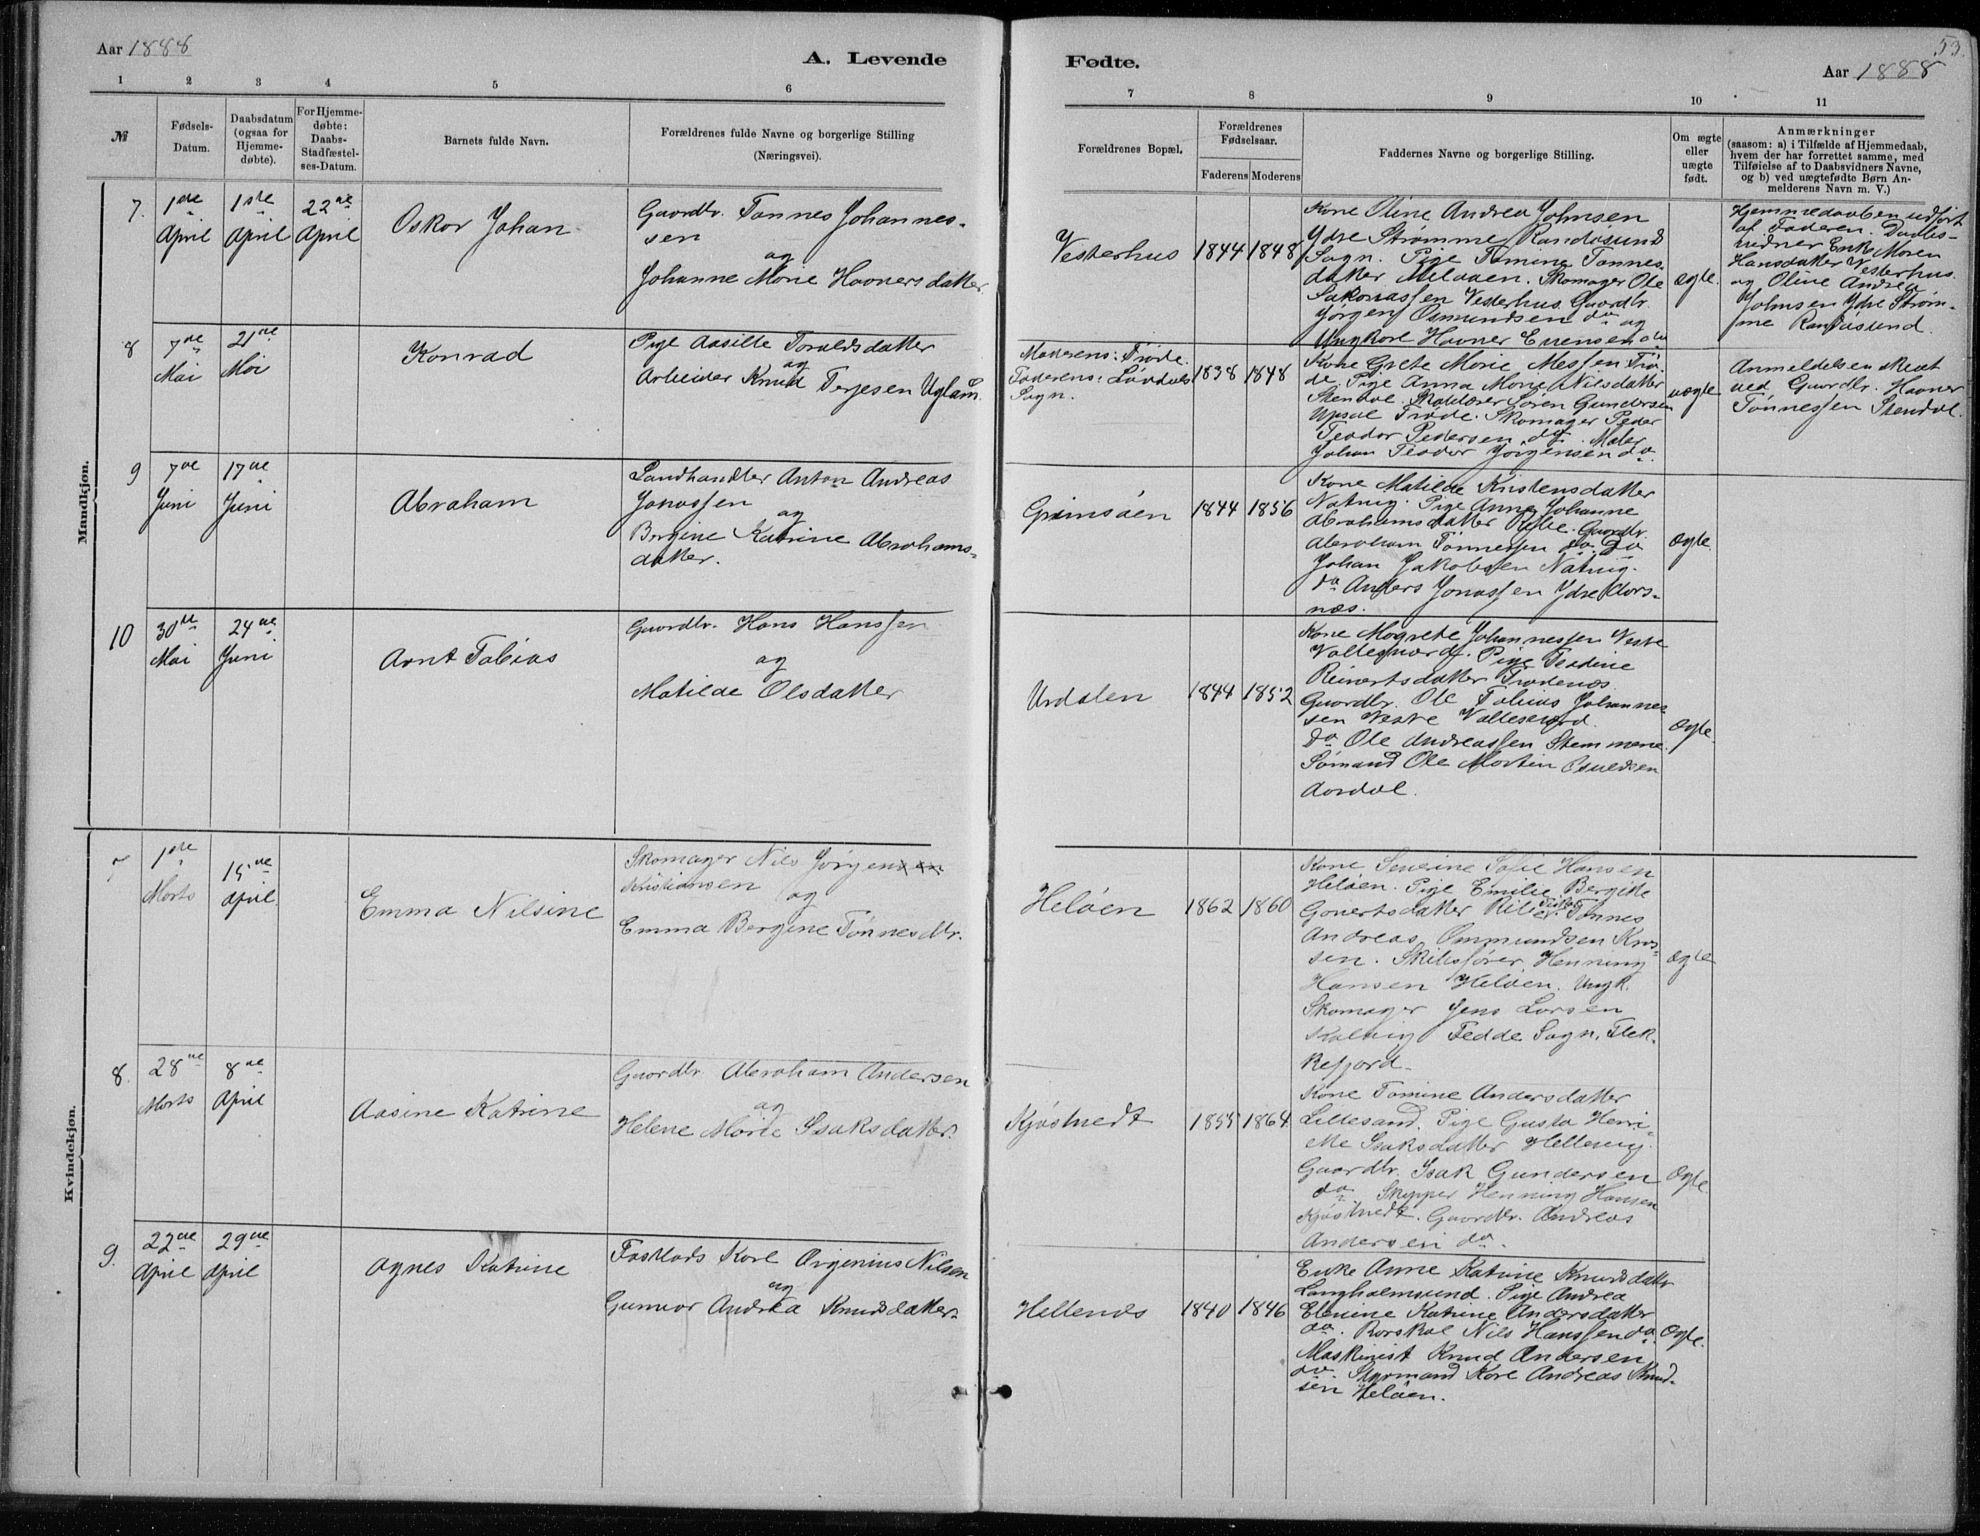 Aar 1888
A. Levende
1 2 3 4 5 6
№
Fødsels-Datum.
Daabsdatum (ogsaa for Hjemme-døbte).
For Hjemme-døbte: Daabs-Stadfæstel-ses-Datum.
Barnets fulde Navn.
Forældrenes fulde Navne og borgerlige Stilling
(Næringsvei).
Mandkjøn.
7. 1ste April 1ste April 22de April
Oskar Johan
Gaardbr. Tønnes Johannes-
sen
og
Johanne Marie Haaversdatter
8 7de Mai 21de Mai
Konrad
Pige Aasille Toraldsdatter
og
Arbeider Knud Terjesen
9 7de Juni 17de Juni
Abraham
Landhandler Anton Andreas
Jonassen
og
Bergine Katrine Abrahams-
datter.
10 30te Mai 24de Juni
Arnt Tobias
Gaardbr. Hans Hanssen
og
Matilde Olsdatter
Kvindekjøn.
7 1ste Marts 15de April
Emma Nilsine
Skomager Nils Jørgen
Kristiansen
og
Emma Bergine Tønnesdtr.
8. 28de Marts 8de April
Aasine Katrine
Gaardbr. Abraham Andersen
og
Helene Marie Isaksdatter.
9. 22de April 29de April
Agnes Katrine
Karl Nilsen
og
Gunvor Andrea Knudsdatter
53.
Fødte.
Aar 1888
7 8 9 10 11
Forældrenes Bopæl.
Forældrenes Fødselsaar.
Faderens Moderens
Faddernes Navne og borgerlige Stilling.
Om ægte eller uægte født.
Anmærkninger
(saasom: a) i Tilfælde af Hjemmedaab,
hvem der har forrettet samme, med
Tilføielse af to Daabsvidners Navne,
og b) ved uægtefødte Børn An-
melderens Navn m. V.)
Vesterhus 1844 1848
Kone Oline Andrea Johnsen
Ydre Strømme Randøsund
Sogn. Pige Tomine Tønnes-
datter. Skomager Ole
Vesterhus Gaardbr.
Jørgen Osmundsen do og
Ungkarl Haaver Evensen do
ægte.
Hjemmedaaben udført
af Faderen. Daabs-
vidner Enke Maren
Hansdatter Vesterhus
og Oline Andrea
Johnsen Ydre Strøm-
me Randøsund.
Moderens: Trøde.
Faderens:
Sogn.
1838 1848
Kone Grete Marie
Pige Anna Marie Nilsdatter
Stendal. Søren Gundersen
Upsal Trøde. Skomager Peder
Teodor Pedersen do. Maler
Johan Teodor Jørgensen do.
uægte
Anmeldelsen skeat
ved Gaardbr. Haaver
Tønnessen Stendal.
Grimsøen 1844 1856
Kone Matilde Kristensdatter
Natvig. Pige Anna Johanne
Abrahamsdatter. Gaardbr.
Abraham Tønnessen do. do
Johan Jakobsen Natvig.
do Anders Jonassen Ydre
næs.
ægte.
Urdalen 1844 1852
Kone Magrete Johannessen Vestre
Vallesværd. Pige Teodine
Reinertsdatter
Gaardbr. Ole Tobias Johannes-
sen Vestre Vallesværd.
do Ole Andreassen Stemmene.
Sømand Ole Martin Osuldsen
Aardal.
ægte.
Heløen 1862 1860
Kone Severine Sofie Hansen
Heløen. Pige Emilie Bergitte
Govertsdatter Tønnes
Andreas Ommundsen
sen. Skibsfører Henning
Hansen Heløen. Ungk.
Skomager Jens Larsen
Fedde Sogn, Flek-
kefjord.
ægte
Kjøstvedt 1855 1864
Kone Tomine Andersdatter
Lillesand. Pige Gusta Henri-
ette Isaksdatter Hellevig.
Gaardbr. Isak Gundersen
do. Skipper Henning Hansen
Kjøstvedt. Gaardbr. Andreas
Andersen do.
Ægte.
Hellenæs 1840 1846
Enke Anne Katrine Knudsdatter
Langholmsund. Pige Andrea
Elenine Katrine Andersdatter
do. Nils Hanssen do.
Maskinist Knud Andersen
do. Styrmand Karl Andreas Knud-
sen Heløen.
Ægte.